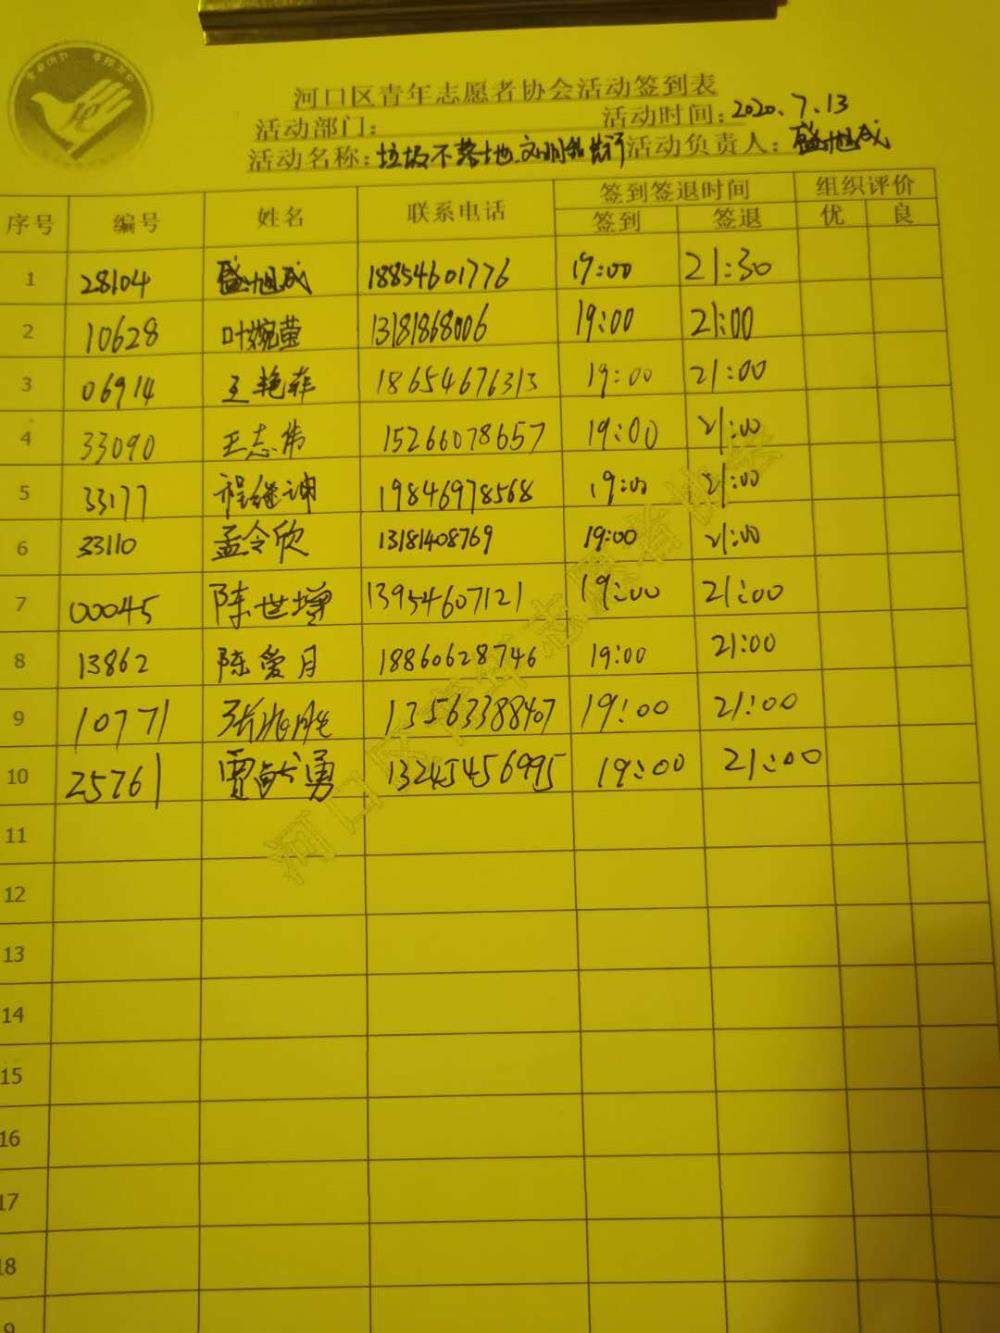 河口区青年志愿者协会活动签到表
活动部门： 活动时间：2020.7.13
活动名称：垃圾不落地 文明 活动负责人：盛旭成
序号 编号 姓名 联系电话 签到签退时间 组织评价
签到 签退 优 良
1 28104 盛旭成 18854601776 19:00 21:30
2 10628 叶婉莹 13181868006 19:00 21:00
3 06914 王艳菲 18654676313 19:00 21:00
4 33090 王志伟 15266078657 19:00 21:00
5 33177 程继坤 19846978568 19:00 21:00
6 33110 孟令欣 13181408769 19:00 21:00
7 00045 陈世增 13954607121 19:00 21:00
8 13862 陈爱月 18860628746 19:00 21:00
9 10771 张 胜 13563388407 19:00 21:00
10 25761 贾 勇 13245456995 19:00 21:00
11
12
13
14
15
16
17
18
9
河口区青年志愿者协会